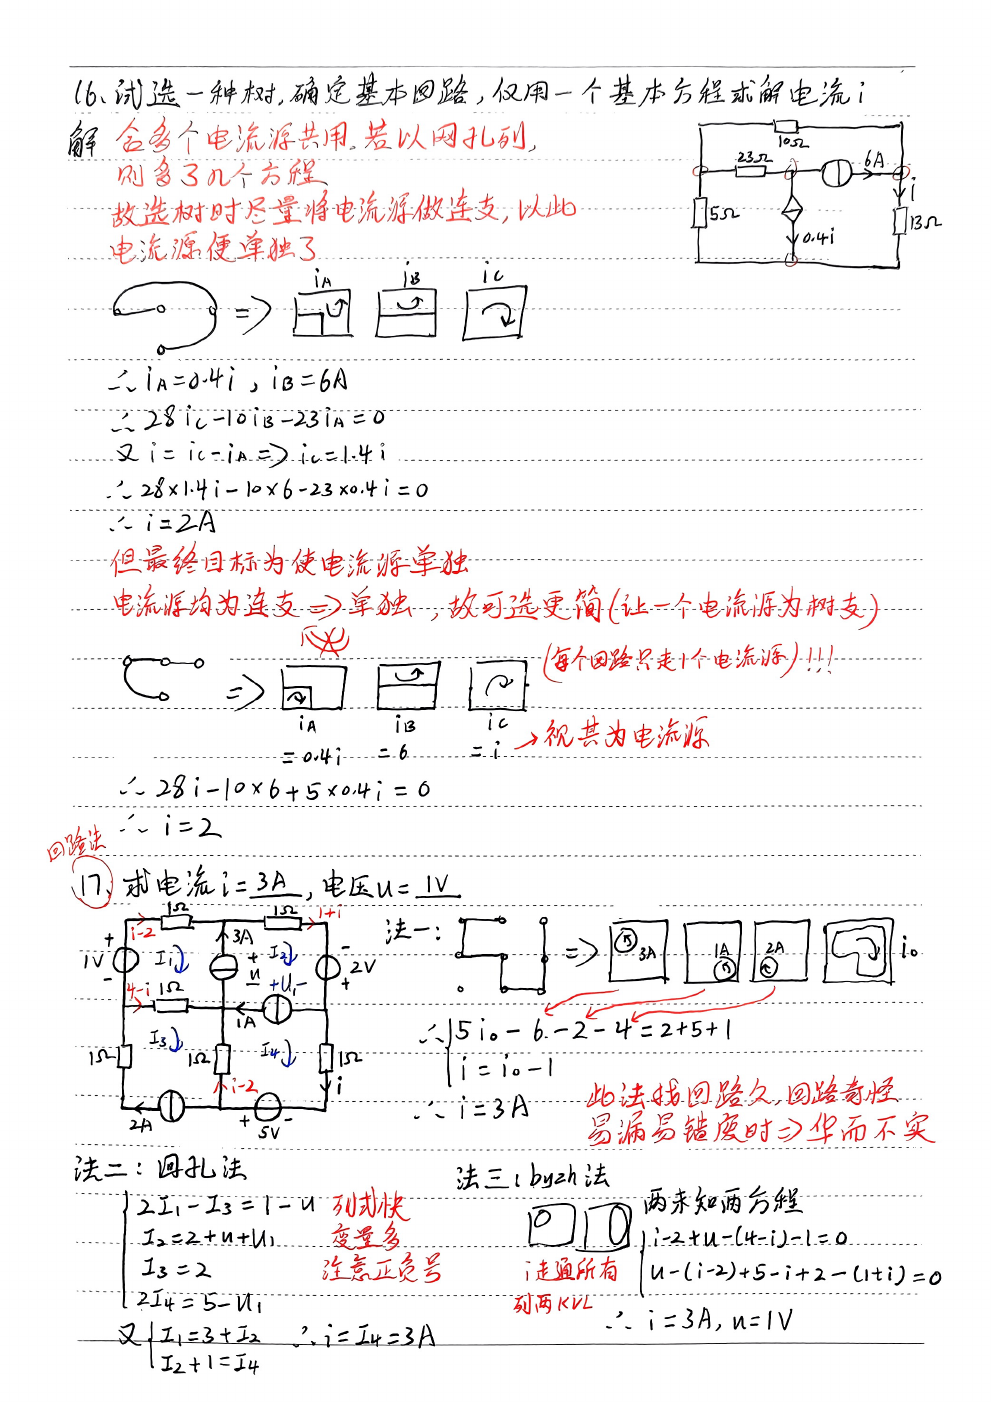 16、试选一种树,确定基本回路,仅用一个基本方程求解电流i
解 含多个电流源共用。若以网孔列,
则多了几个方程
故选树时尽量将电流源做连支,以此
电流源便单独了
10Ω
23Ω
6A
i
5Ω
13Ω
0.4i
iA iB iC
=>
∴ iA=0.4i , iB=6A
∴ 28iC-10iB-23iA=0
又 i=iC-iA=>iC=1.4i
∴ 28×1.4i-10×6-23×0.4i=0
∴ i=2A
但最终目标为使电流源单独
电流源均为连支=>单独,故可选更简(让一个电流源为树支)
(每个回路只走1个电流源)!!!
=>
iA iB iC
=0.4i =6 =i →视其为电流源
∴ 28i-10×6+5×0.4i=0
∴ i=2
回路法
17、求电流i=3A,电压u=1V
1Ω 1Ω 1+i
i-2
+ 3A I₂ -
1V I₁ + u - +U₁- 2V
- +
4-i 1Ω
1A
I₃ I₄
1Ω 1Ω 1Ω
i-2 i
2A + 5V -
法一: => 3A 1A 2A i₀
∴ 5i₀-6-2-4=2+5+1
i=i₀-1
∴ i=3A
此法找回路久,回路奇怪
易漏易错废时=>华而不实
法二:网孔法
2I₁-I₃=1-u 列式快
I₂=2+u+U₁ 变量多
I₃=2 注意正负号
2I₄=5-U₁
又 I₁=3+I₂ ∴i=I₄=3A
I₂+1=I₄
法三:byzh法
两未知两方程
i-2+u-(4-i)-1=0
i走通所有 u-(i-2)+5-i+2-(1+i)=0
列两KVL
∴ i=3A,u=1V